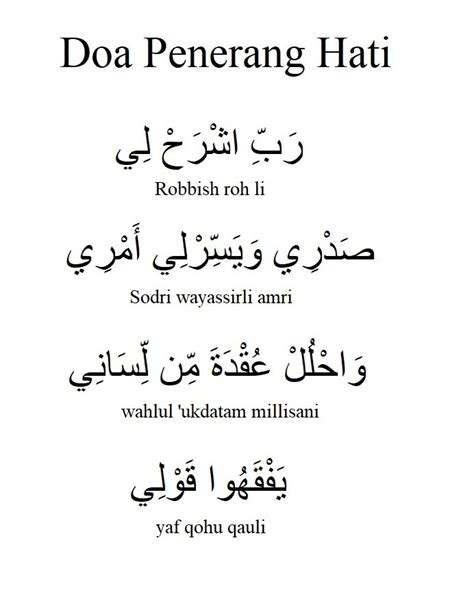 Doa Penerang Hati
رَبِّ اشْرَحْ لِي
Robbish roh li
صَدْرِي وَيَسِّرْلِي أَمْرِي
Sodri wayassirli amri
وَاحْلُلْ عُقْدَةَ مِّن لِّسَانِي
wahlul 'ukdatam millisani
يَفْقَهُوا قَوْلِي
yaf qohu qauli